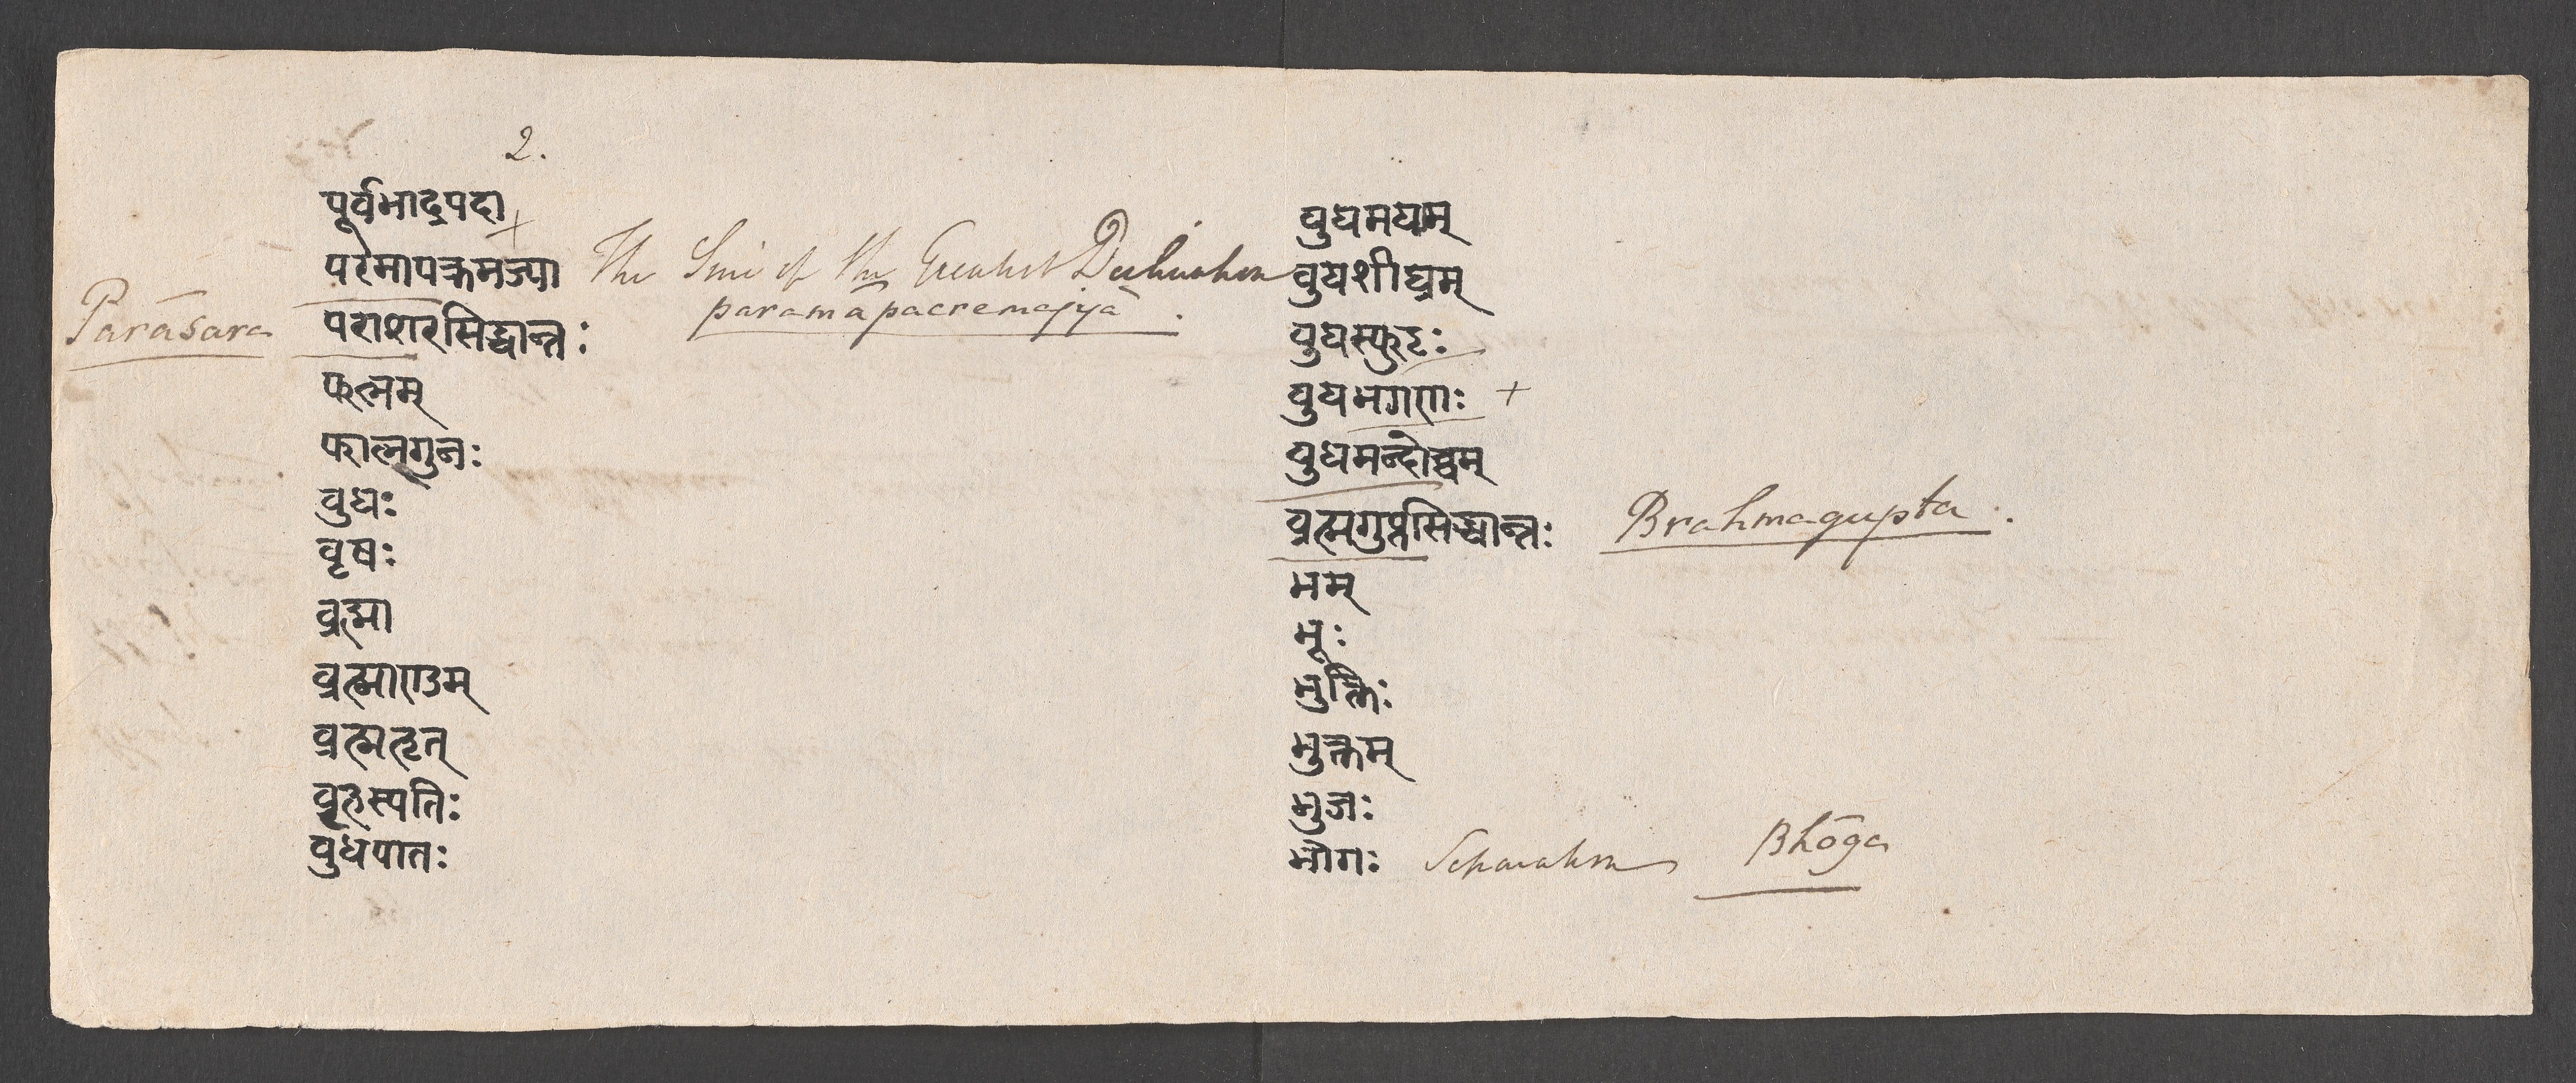 2.
पूर्वभाद्रपदा
परमापक्रमज्या The Sine of the Greatest Declination
paramāpacremajyā.
Parāsara पराशरसिद्धान्तः
फलम्
फाल्गुनः
वुधः
वृषः
व्रह्मा
व्रह्माण्डम्
व्रह्महृत्
वृहस्पतिः
वुधपातः
वुधमध्यम्
वुधशीघ्रम्
वुधस्फुटः
वुधभगणाः +
वुधमन्दोच्चम्
व्रह्मगुप्तसिद्धान्तः Brahmagupta.
भम्
भूः
भुक्तिः
भुक्तम्
भुजः
भोगः Separation Bhōga